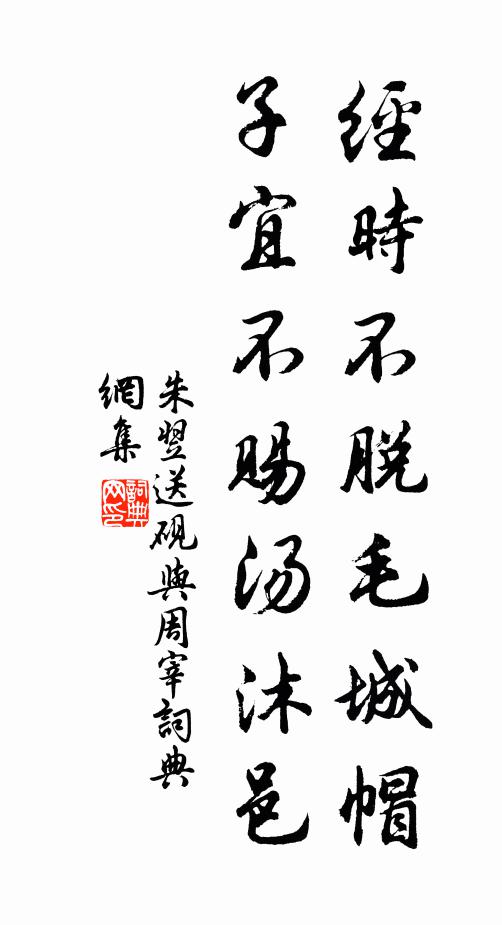 經時不脱毛城帽
子宜不賜汤沐邑
朱翌送硯與周宰詞典
網集
詞典
网印